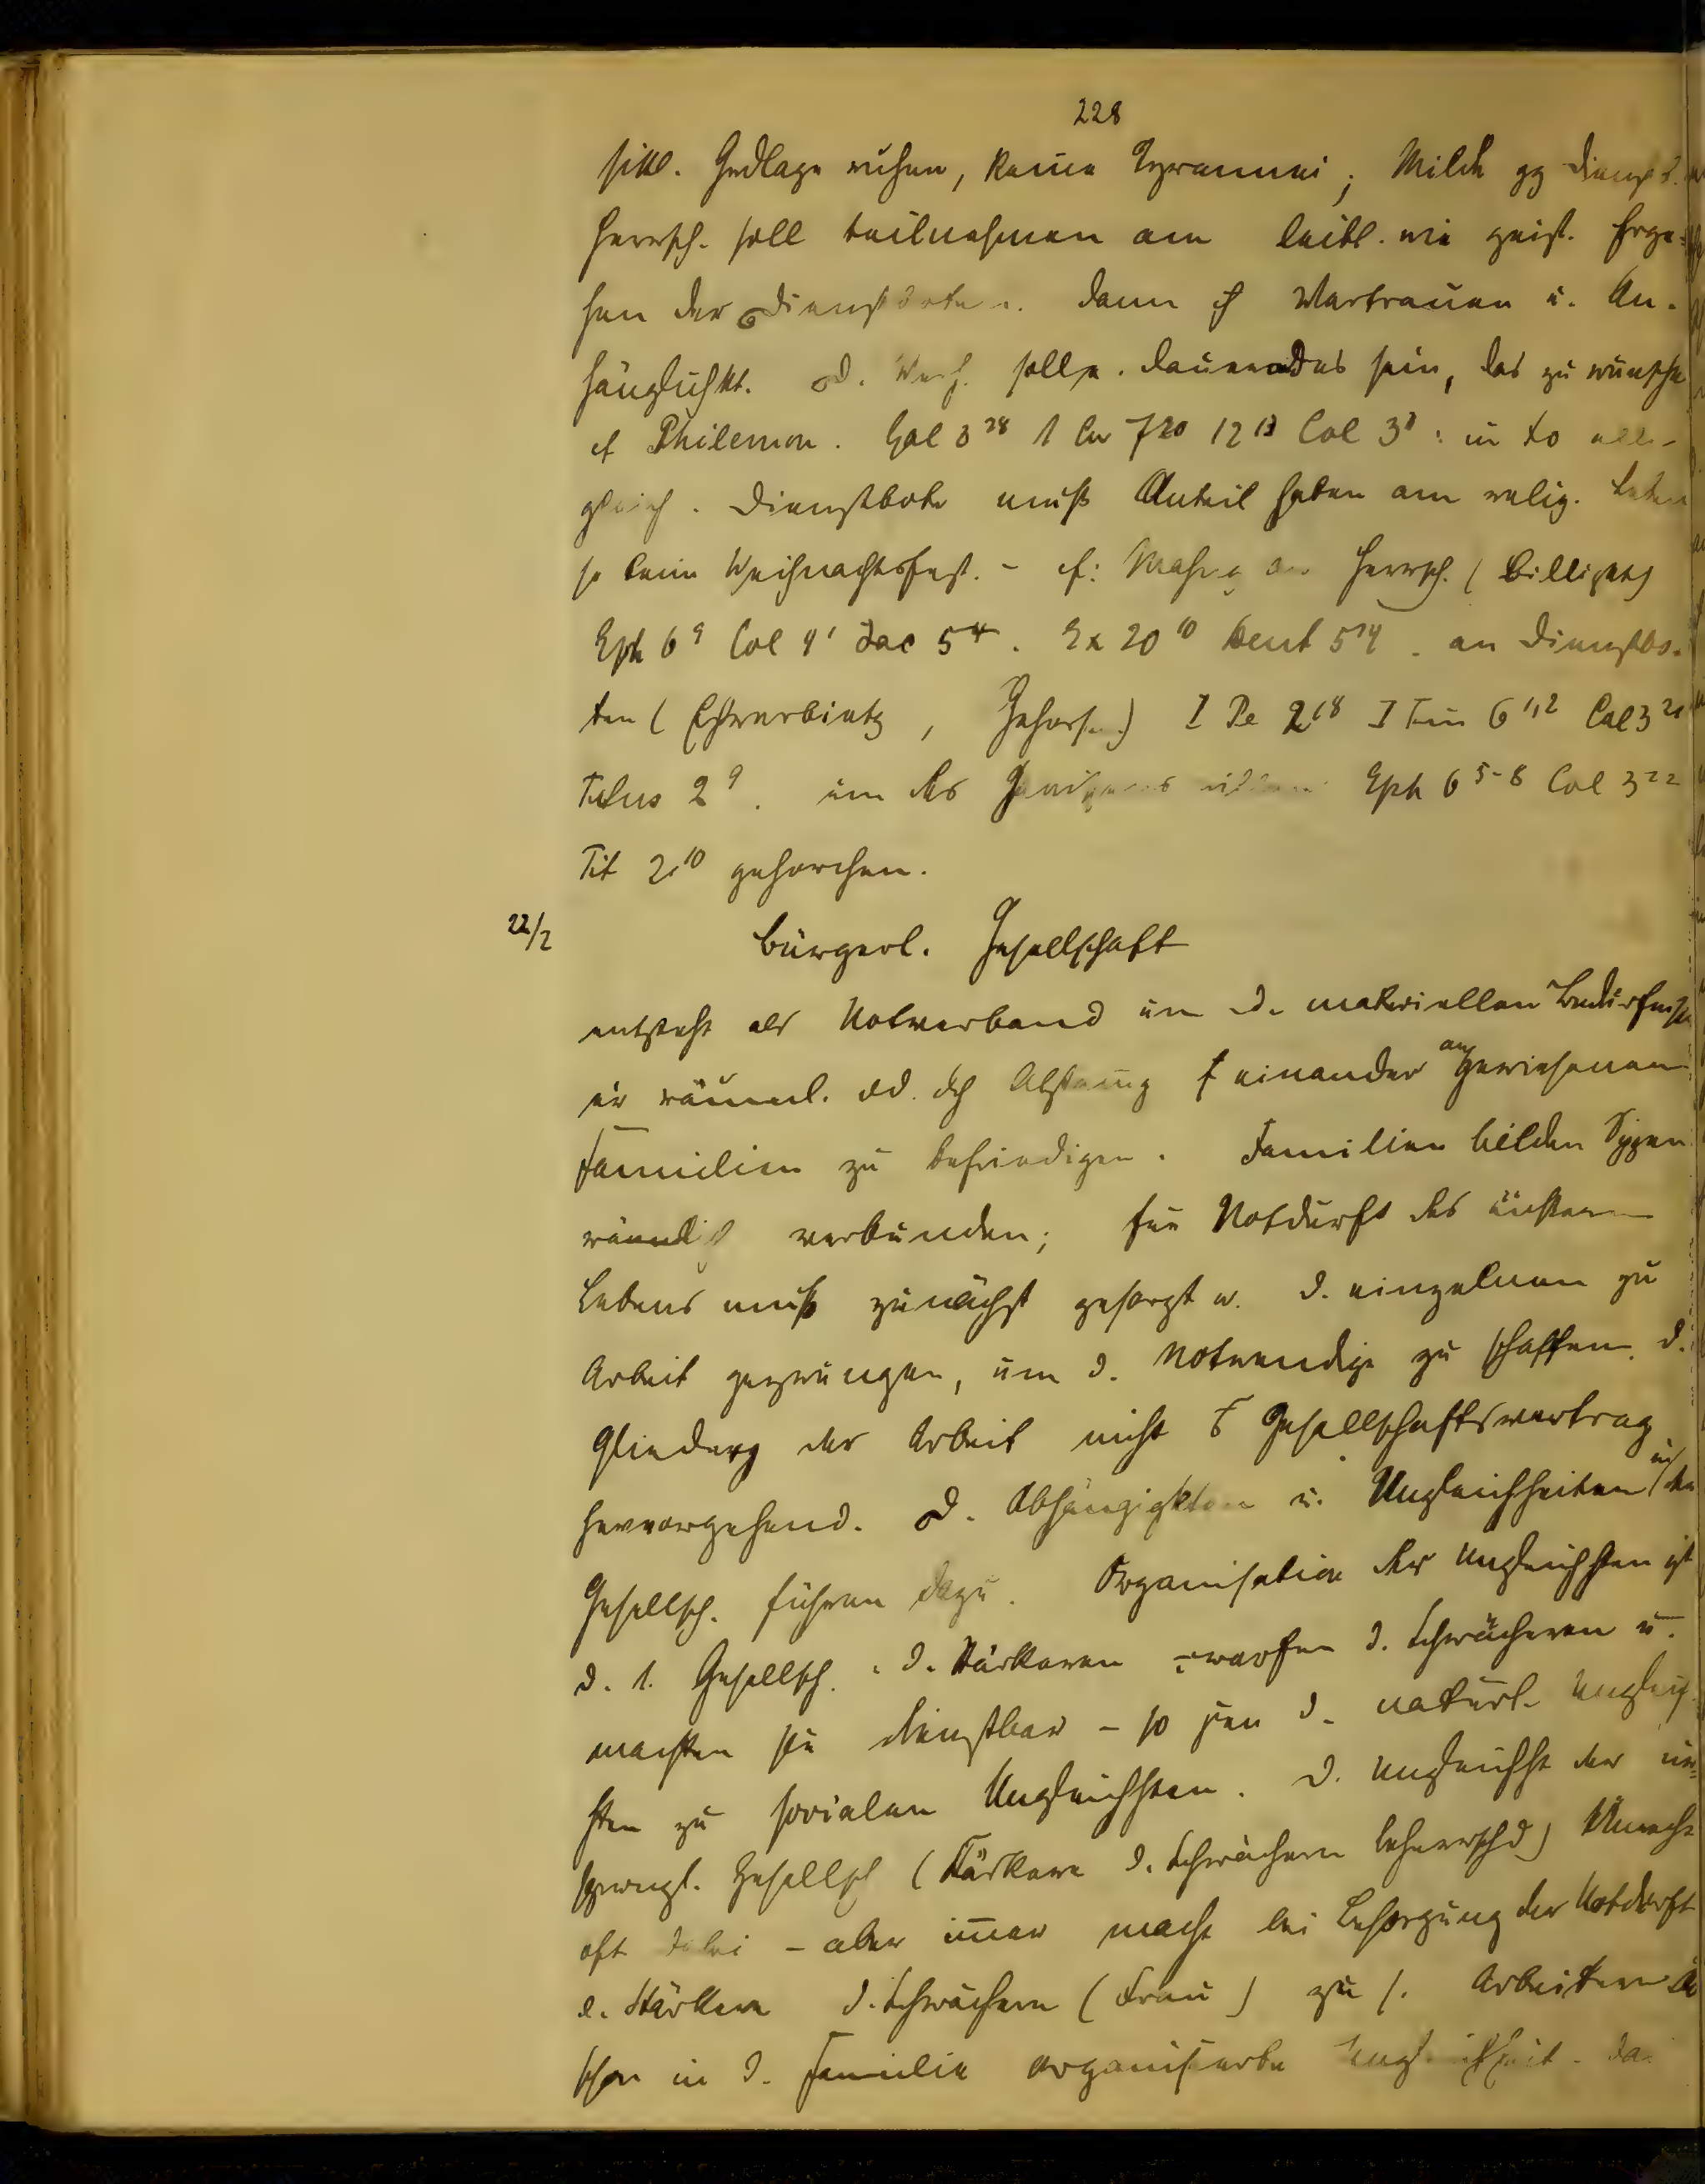 228
sittl. Grdlage ruhen, keine Tyrannei; Milde gg Dienstb.
Herrsch. soll teilnehmen am leibl. wie geist. Erge-
hen der Dienstboten. dann ist Vertrauen u. An-
hänglichkt. D. Verh. solle. dauerndes sein, das zu wünschen
cf Philemon. Gal 3 28 1 Cor 7 20 12 13 Col 3 : in to alle
gleich. Dienstbote muß Anteil haben am relig. Leben
so beim Weihnachtsfest. - cf: Mahng an Herrsch. (Billigkeit)
Eph 6 9 Col 4 1 Jac 5 4. Ex 20 10 Deut 5 14. an Dienstbo-
ten (Ehrerbietg, Gehors.) I Pe 2 18 I Tim 6 1,2 Col 3 22
Titus 2 9. um des Gewissens willen Eph 6 5-8 Col 3 22
Tit 2 10 gehorchen.
22/2 Bürgerl. Gesellschaft
entsteht als Notverband um d. materiellen Bedürfnisse
der räuml. od. dch Abstamg f einander angewiesenen
Familien zu befriedigen. Familien bilden Sippen
räumlich verbunden; für Notdurft des äußern
Lebens muß zunächst gesorgt w. d. einzelnen zu
Arbeit gezwungen, um d. Notwendige zu schaffen. d.
Gliederg der Arbeit nicht Gesellschaftsvertrag
hervorgehend. D. Abhängigkten u. Ungleichheiten in der
Gesellsch. führen dazu. Organisation der Ungleichhten ist
d. 1. Gesellsch. d. Stärkeren unterwarfen d. Schwächeren u.
machten sie dienstbar - so d. natürl. Ungleich-
hten zu sozialen Ungleichhten. D. Ungleichht der ur-
sprüngl. Gesellsch (Stärkere d. Schwächern beherrschd)
oft dabei - aber immer macht bei Besorgung der Notdurft
d. Stärkere d. Schwächern (Frau) zu s. Arbeitern
schon in d. Familie organisierte Ungleichheit. da